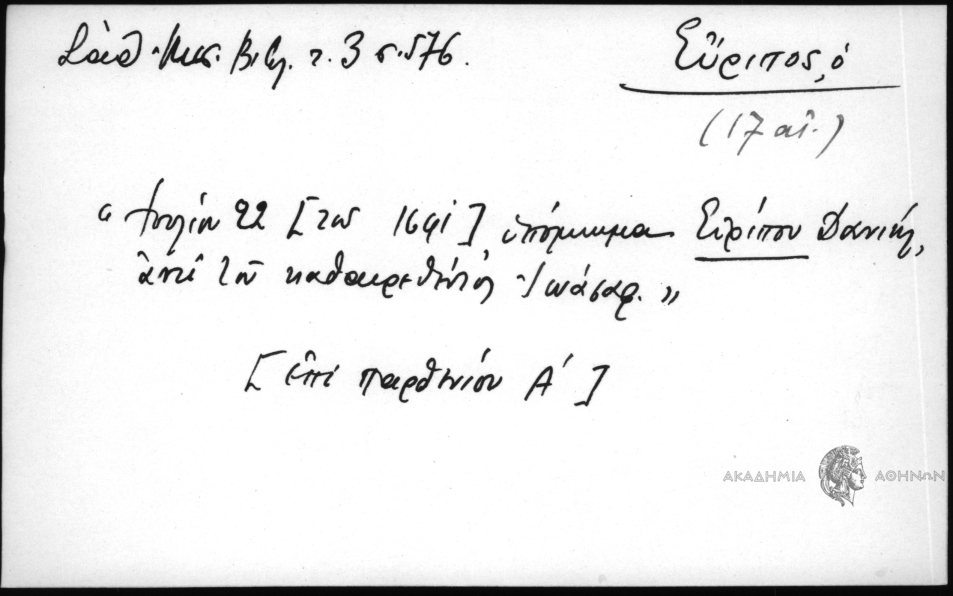 Σάθ. Μεσ. Βιβλ. τ. 3 σ. 576.
Εὔριπος, ὁ
(17 αἰ.)
« Ἰουλίου 22 [τοῦ 1641] ὑπόμνημα Εὐρίπου Δανιήλ,
ἀντὶ τοῦ καθαιρεθέντος Ἰωάσαφ. »
[ἐπὶ Παρθενίου Α´]
ΑΚΑΔΗΜΙΑ ΑΘΗΝΩΝ